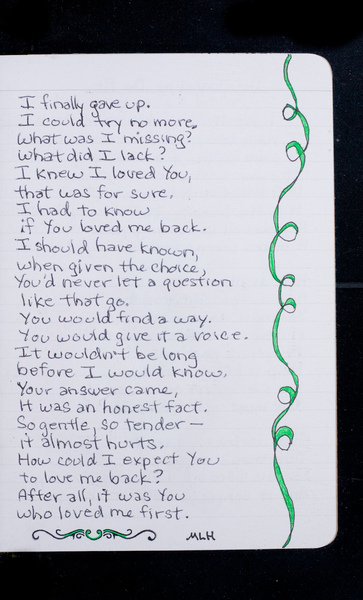 I finally gave up.
I could try no more.
What was I missing?
What did I lack?
I knew I loved You,
that was for sure.
I had to know
if You loved me back.
I should have known,
when given the choice,
You'd never let a question
like that go.
You would find a way.
You would give it a voice.
It wouldn't be long
before I would know.
Your answer came,
it was an honest fact.
So gentle, so tender —
it almost hurts.
How could I expect You
to love me back?
After all, it was You
who loved me first.
MLH